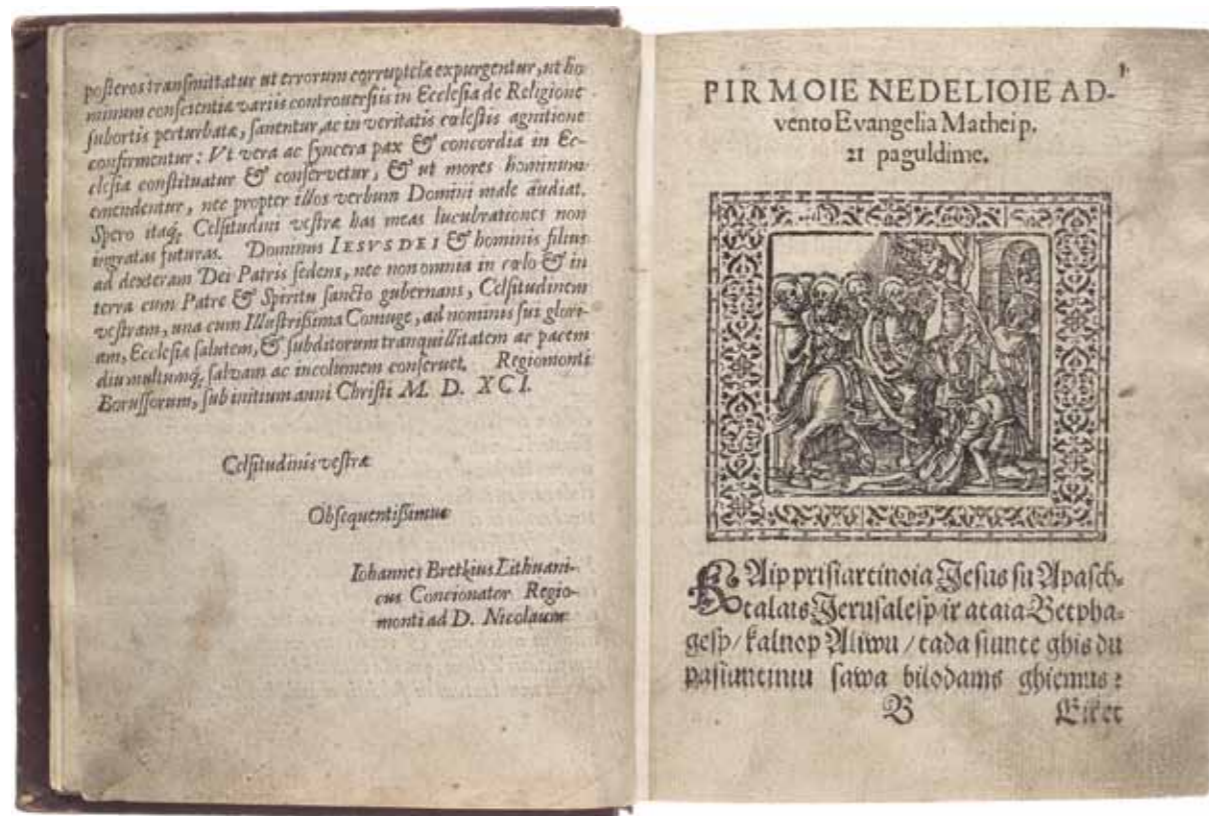 posteros transmittatur ut errorum corruptelæ expurgentur, ut ho-
minum conscientiæ variis controuersiis in Ecclesia de Religione
subortis perturbatæ, sanentur, ac in veritatis cœlestis agnitione
confirmentur: Vt vera ac syncera pax & concordia in Ec-
clesia constituatur & conservetur, & ut mores hominum
emendentur, nec propter illos verbum Domini male audiat.
Spero itaq; Celsitudini vestræ has meas lucubrationes non
ingratas futuras. Dominus IESVS DEI & hominis filius
ad dexteram Dei Patris sedens, nec non omnia in cœlo & in
terra cum Patre & Spiritu sancto gubernans, Celsitudinem
vestram, una cum Illustrißima Coniuge, ad nominis sui glori-
am, Ecclesiæ salutem, & subditorum tranquillitatem ac pacem
diu multumq; salvam ac incolumem conseruet. Regiomonti
Borussorum, sub initium anni Christi M. D. XCI.
Celsitudinis vestræ
Obsequentißimus
Iohannes Bretkius Lithuani-
cus Concionator Regio-
monti ad D. Nicolaum
1.
PIRMOIE NEDELIOIE AD-
vento Evangelia Mathei p.
21 paguldime.
KAip prisiartinoia Jesus su Apasch-
talais Jerusalesp ir ataia Betpha-
gesp / kalnop Aliwu / tada siunte ghis du
pasiuntiniu sawa bilodams ghiemus:
B Eiket